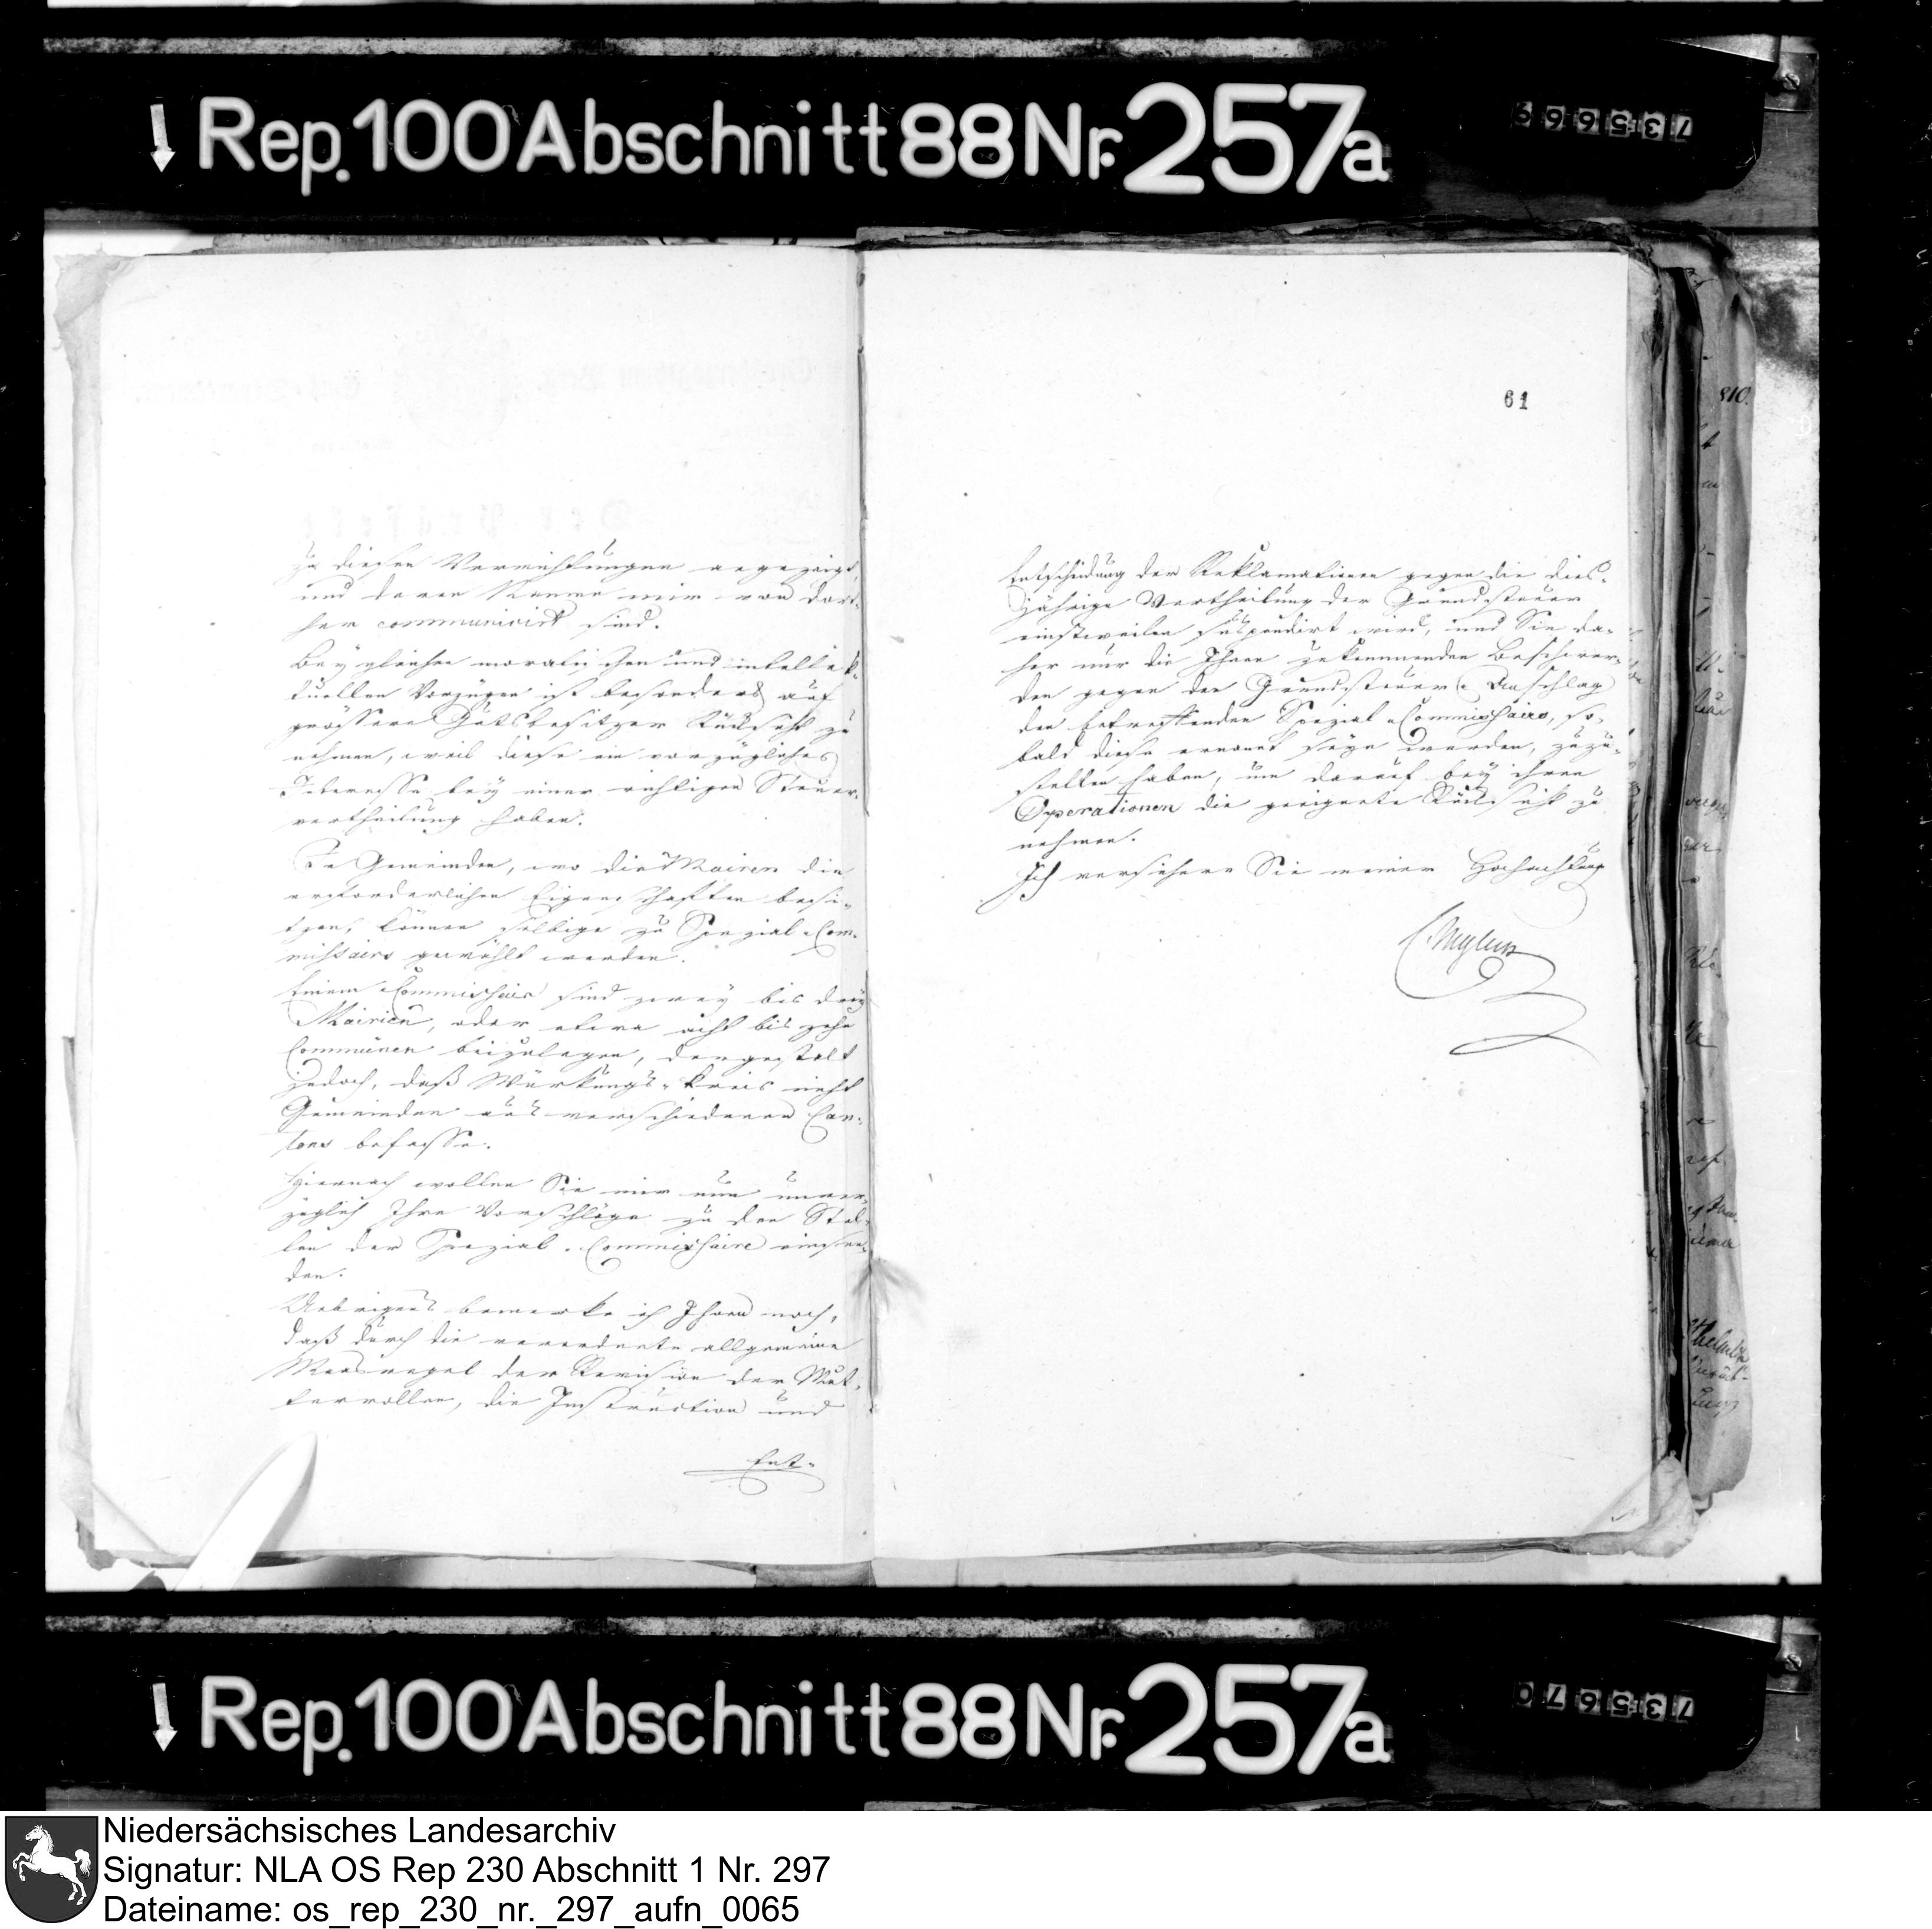 Rep. 100 Abschnitt 88 Nr. 257a
735669
zu diesen Verrichtungen angezeigt,
und deren Namen mir von dort-
her communicirt sind.
Bey gleichen moralischen und intellek-
tuellen Vorzügen ist besonders auf
grössere Gutsbesitzer Rücksicht zu
nehmen, weil diese ein vorzügliches
Interesse bey einer richtigen Steuer-
vertheilung haben.
In Gemeinden, wo die Mairen die
erforderlichen Eigenschaften besi-
tzen, können selbige zu Spezial-Com-
missairs gewählt werden.
Einem Commissair sind zwey bis drey
Mairien, oder etwa acht bis zehn
Communen beizulegen, dergestalt
jedoch, daß Würkungs-Kreis nicht
Gemeinden aus verschiedenen Can-
tons befasse.
Hiernach wollen Sie mir nun unver-
züglich Ihre Vorschläge zu den Stel-
len der Spezial-Commissaire einsen-
den.
Uebrigens bemerke ich Ihnen noch,
daß durch die verordnete allgemeine
Maasregel der Revision der Mut-
terrollen, die Instruction und
Ent-
61
Entscheidung der Reklamationen gegen die dies-
jährige Vertheilung der Grundsteuer
einstweilen suspendirt wird, und Sie da-
her nur die Ihnen zukommenden Beschwer-
den gegen den Grundsteuer-Anschlag
den betreffenden Spezial-Commissairs, so-
bald diese ernannt seyn werden, zuzu-
stellen haben, um darauf bey ihren
Operationen die geeignete Rücksicht zu
nehmen.
Ich versichere Sie meiner Hochachtung
810.
Rep. 100 Abschnitt 88 Nr. 257a
735670
Niedersächsisches Landesarchiv
Signatur: NLA OS Rep 230 Abschnitt 1 Nr. 297
Dateiname: os_rep_230_nr._297_aufn_0065